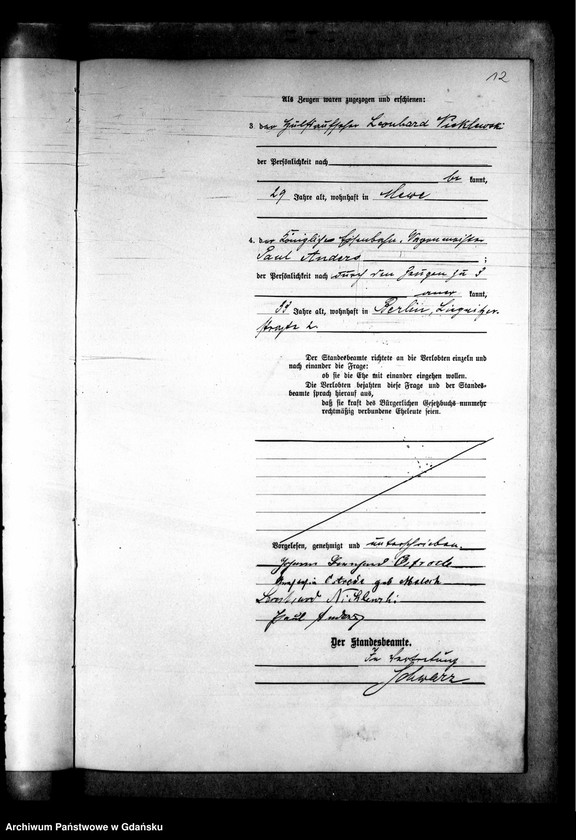 12
Als Zeugen waren zugezogen und erschienen:
3. der Hülfsaufseher Leonhard
der Persönlichkeit nach
be kannt,
29 Jahre alt, wohnhaft in Mewe
4. der Königliche Eisenbahn-Wagenmeister
Paul Anders ;
der Persönlichkeit nach durch den Zeugen zu 3
aner kannt,
33 Jahre alt, wohnhaft in Berlin, Liegnitzer-
straße 2
Der Standesbeamte richtete an die Verlobten einzeln und
nach einander die Frage:
ob sie die Ehe mit einander eingehen wollen.
Die Verlobten bejahten diese Frage und der Standes-
beamte sprach hierauf aus,
daß sie kraft des Bürgerlichen Gesetzbuchs nunmehr
rechtmäßig verbundene Eheleute seien.
Vorgelesen, genehmigt und unterschrieben.
Johann Bernhard
geb
Leonhard
Paul Anders
Der Standesbeamte.
In Vertretung
Schwarz
Archiwum Państwowe w Gdańsku